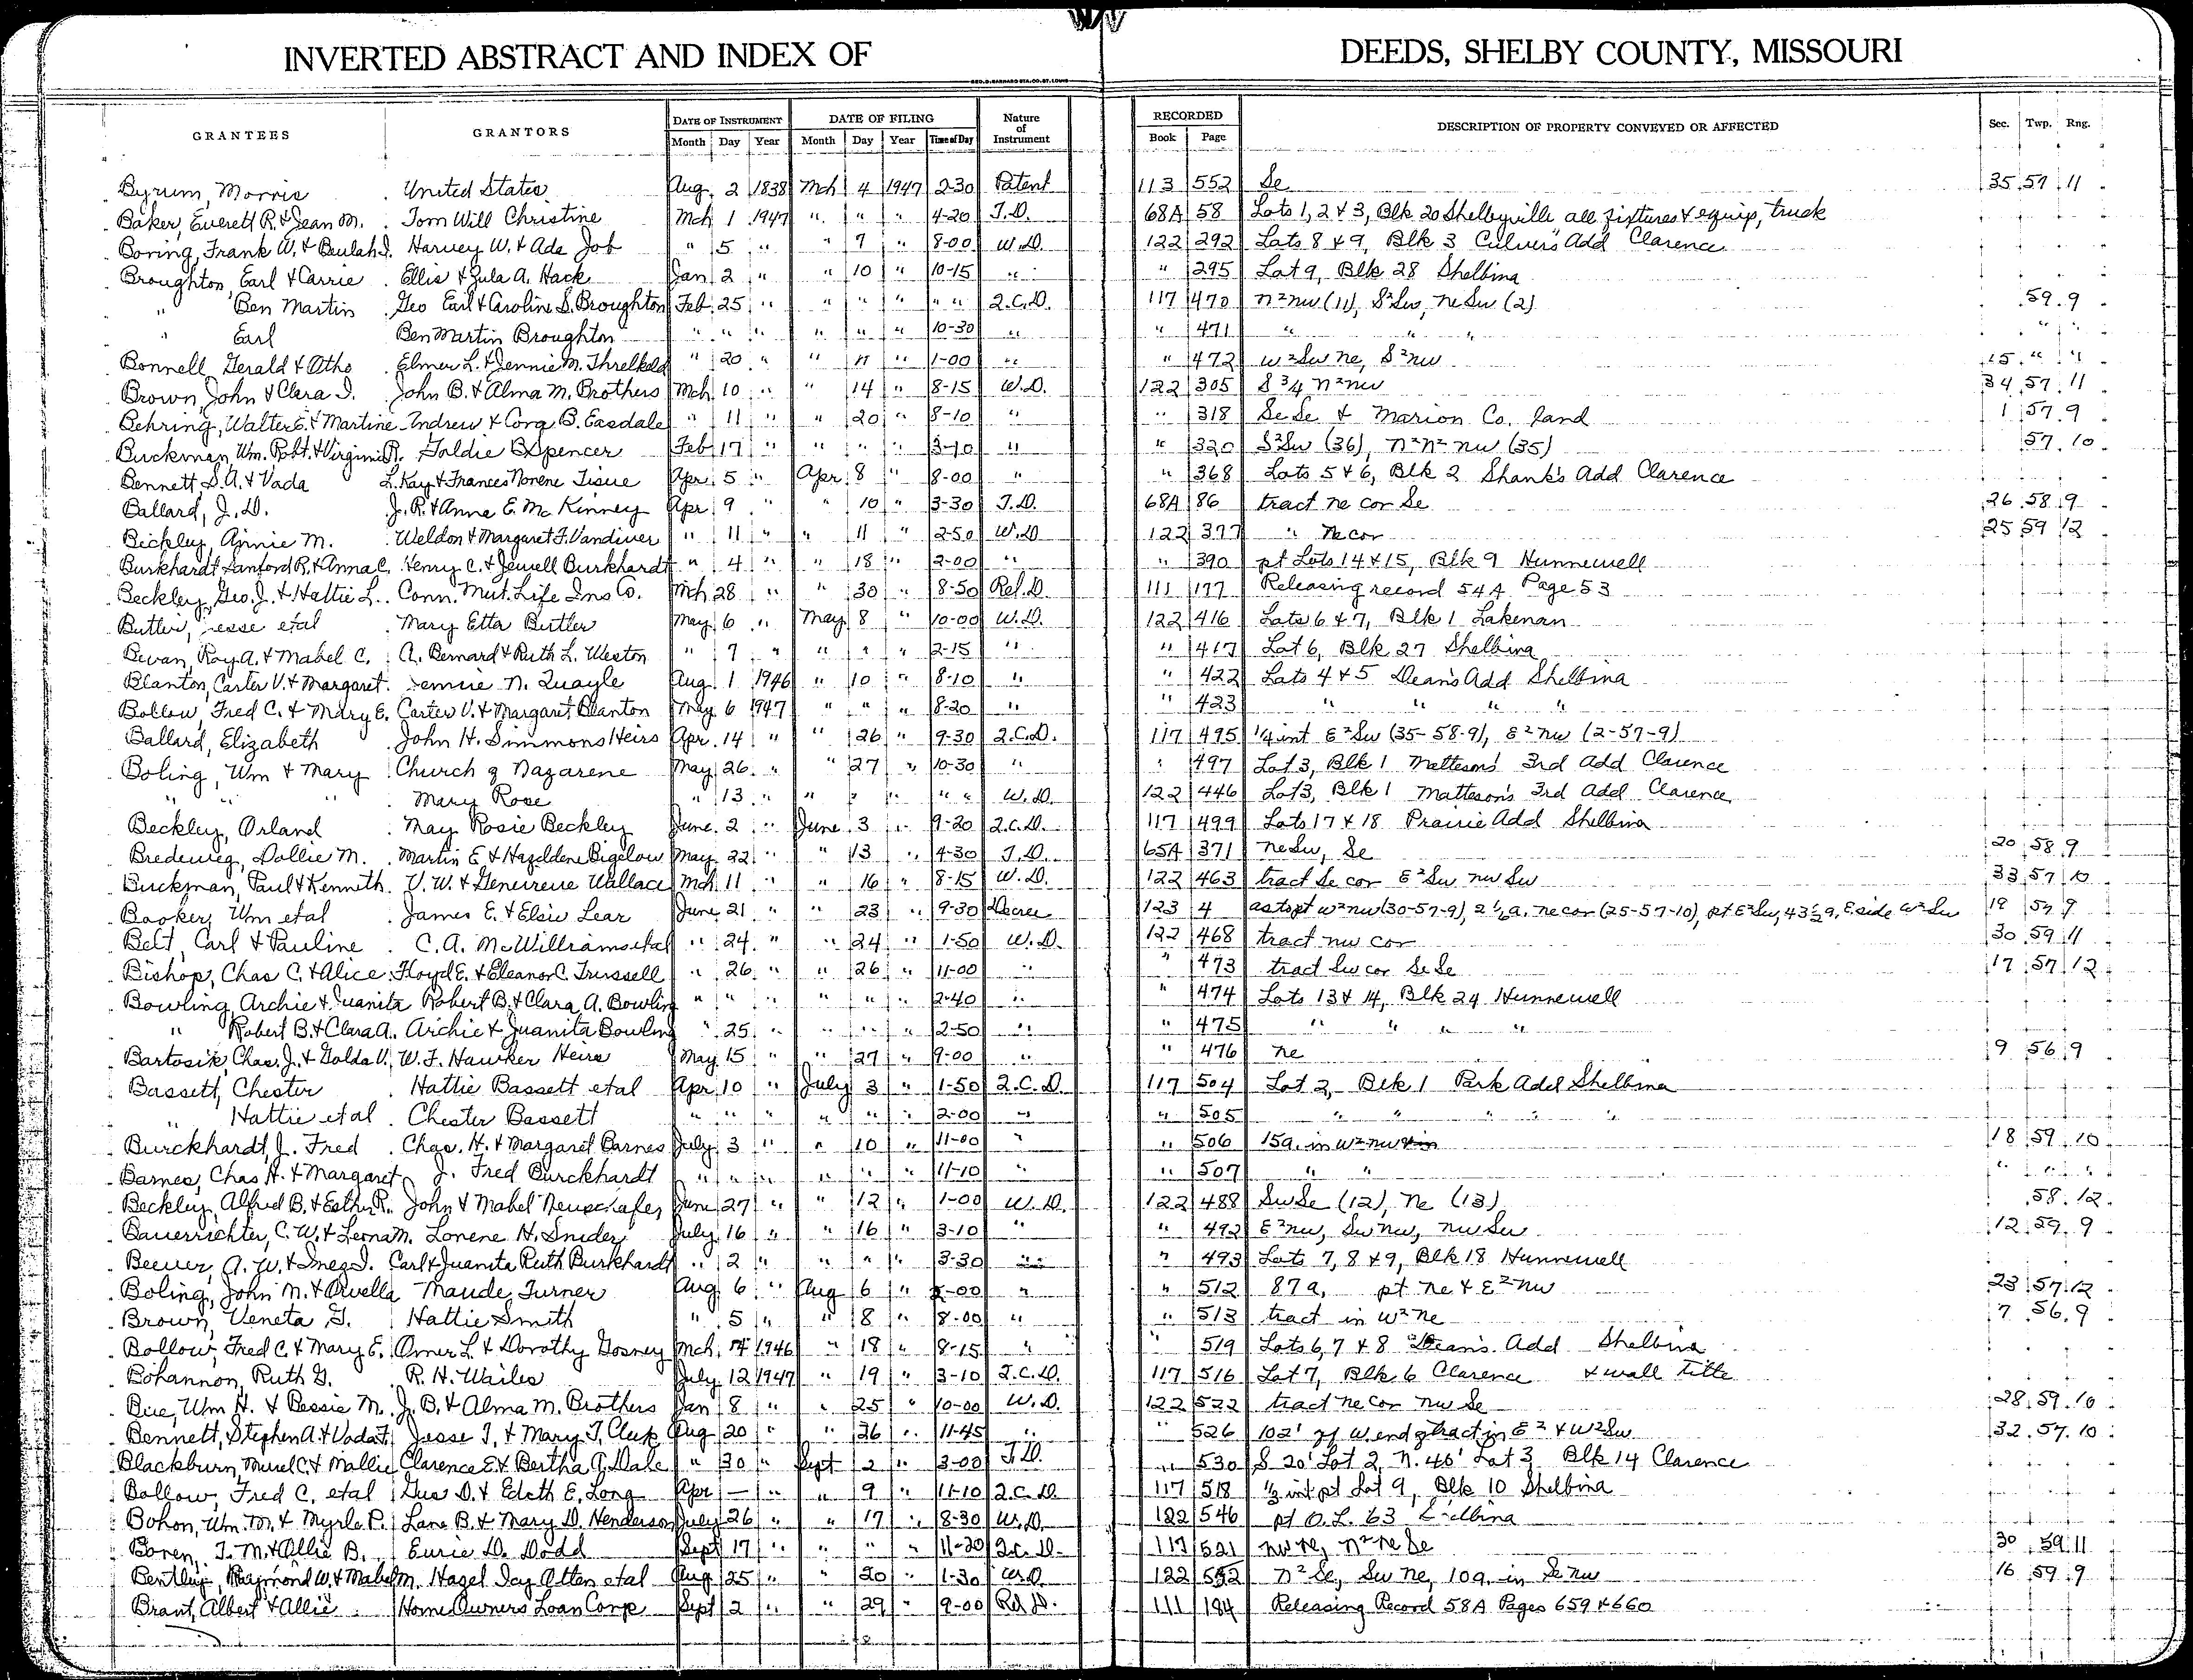 INVERTED ABSTRACT AND INDEX OF DEEDS, SHELBY COUNTY, MISSOURI
GRANTEES GRANTORS DATE OF INSTRUMENT DATE OF FILING Nature of Instrument RECORDED DESCRIPTION OF PROPERTY CONVEYED OR AFFECTED Sec. Twp. Rng.
Month Day Year Month Day Year Time of Day Book Page
Byrum, Morris United States Aug. 2 1838 Mch 4 1947 2-30 Patent 113 552 Se 35 57 11
Baker, Everett R. & Jean M. Tom Will Christine Mch 1 1947 " " " 4-20 T.D. 68A 58 Lots 1, 2 & 3, Blk 20 Shelbyville all fixtures & equip, truck
Boring, Frank W. & Beulah I. Harvey W. & Ada Job " 5 " " 7 " 8-00 W.D. 122 292 Lots 8 & 9, Blk 3 Culver's Add Clarence
Broughton, Earl & Carrie Ellis & Zula A. Hack Jan 2 " " 10 " 10-15 " " 295 Lot 9, Blk 28 Shelbina
" Ben Martin Geo Earl & Caroline S. Broughton Feb 25 " " " " " " 2.C.D. 117 470 N²NW (11), S²SW, NeSw (2) 59 9
" Earl Ben Martin Broughton " " " " " " 10-30 " " 471 " " " " "
Bonnell, Gerald & Atho Elmer L. & Jennie M. Threlkeld " 20 " " 11 " 1-00 " " 472 W²Sw Ne, S²NW 15 " "
Brown, John & Clara I. John B. & Alma M. Brothers Mch 10 " " 14 " 8-15 W.D. 122 305 S 3/4 N²NW 34 57 11
Behring, Walter E. & Martine Andrew & Cora B. Easdale " 11 " " 20 " 8-10 " " 318 SeSe & Marion Co. land 1 57 9
Buckman, Wm. Robt. & Virginia R. Goldie B Spencer Feb 17 " " " " 3-10 " " 320 S²Sw (36), N²N² NW (35) 57 10
Bennett S.A. & Vada L. Kay & Frances Norene Tisue Apr. 5 " Apr 8 " 8-00 " " 368 Lots 5 & 6, Blk 2 Shank's Add Clarence
Ballard, J. D. J. R. & Anna E. McKinney Apr 9 " " 10 " 3-30 T.D. 68A 86 tract Ne cor Se 26 58 9
Bickley, Annie M. Weldon & Margaret F. Vandiver " 11 " " 11 " 2-50 W.D 122 377 " Ne cor 25 59 12
Burkhardt Sanford R. & Anna C. Henry C. & Jewell Burkhardt " 4 " " 18 " 2-00 " " 390 pt Lots 14 & 15, Blk 9 Hunnewell
Beckley, Geo. J. & Hattie L. Conn. Mut. Life Ins Co. Mch 28 " " 30 " 8-50 Rel. D. 111 177 Releasing record 54A Page 53
Butler, Jesse etal Mary Etta Butler May 6 " May 8 " 10-00 W.D. 122 416 Lots 6 & 7, Blk 1 Lakenan
Bevan, Roy A. & Mabel C. A. Bernard & Ruth L. Weston " 7 " " " " 2-15 " " 417 Lot 6, Blk 27 Shelbina
Blanton, Carter V. & Margaret Jennie N. Quayle Aug. 1 1946 " 10 " 8-10 " " 422 Lots 4 & 5 Dean's Add Shelbina
Bollow, Fred C. & Mary E. Carter V. & Margaret Blanton May 6 1947 " " " 8-20 " " 423 " " " "
Ballard, Elizabeth John H. Simmons Heirs Apr. 14 " " 26 " 9-30 2.C.D. 117 495 1/4 int E²Sw (35-58-9), E²NW (2-57-9)
Boling, Wm & Mary Church of Nazarene May 26 " " 27 " 10-30 " " 497 Lot 3, Blk 1 Matteson's 3rd Add Clarence
" " " Mary Rose " 13 " " " " " " W.D. 122 446 Lot 3, Blk 1 Matteson's 3rd Add Clarence
Beckley, Orland May Rosie Beckley June 2 " June 3 " 9-20 2.C.D. 117 499 Lots 17 & 18 Prairie Add Shelbina
Bredeweg, Dollie M. Martin E & Hazeldene Bigelow May 22 " " 13 " 4-30 T.D. 65A 371 NeSw, Se 20 58 9
Buckman, Paul & Kenneth V. W. & Genevieve Wallace Mch 11 " " 16 " 8-15 W.D. 122 463 tract Se cor E²Sw NW Sw 33 57 10
Booker, Wm etal James E. & Elsie Lear June 21 " " 23 " 9-30 Decree 123 4 as to pt W²NW (30-57-9), 2 1/2 a. Ne cor (25-57-10), pt E²Sw, 43 1/2 a, E side W²Sw 19 57 9
Belt, Carl & Pauline C. A. McWilliams etal " 24 " " 24 " 1-50 W.D. 122 468 tract NW cor 30 59 11
Bishop, Chas C. & Alice Floyd E. & Eleanor C. Trussell " 26 " " 26 " 11-00 " " 473 tract Sw cor SeSe 17 57 12
Bowling, Archie & Juanita Robert B. & Clara A. Bowling " " " " " " 2-40 " " 474 Lots 13 & 14, Blk 24 Hunnewell
" Robert B. & Clara A. Archie & Juanita Bowling " 25 " " " " 2-50 " " 475 " " " "
Bartosik, Chas. J. & Golda V. W. F. Hawker Heirs May 15 " " 27 " 9-00 " " 476 Ne 9 56 9
Bassett, Chester Hattie Bassett etal Apr 10 " July 3 " 1-50 2.C.D. 117 504 Lot 2, Blk 1 Park Add Shelbina
" Hattie etal Chester Bassett " " " " " " 2-00 " " 505 " " " " "
Burckhardt, J. Fred Chas. H. & Margaret Barnes July 3 " " 10 " 11-00 " " 506 15a. in W²NW 18 59 10
Barnes, Chas H. & Margaret J. Fred Burckhardt " " " " " " 11-10 " " 507 " " " " "
Beckley, Alfred B. & Esther R. John & Mabel Neuschafer June 27 " " 12 " 1-00 W.D. 122 488 SwSe (12), Ne (13) 58 12
Bauerrichter, C. W. & Leona M. Lorene H. Snider July 16 " " 16 " 3-10 " " 492 E²NW, SwNW, NWSw 12 59 9
A. W. & Inez I. Carl & Juanita Ruth Burkhardt " 2 " " " " 3-30 " " 493 Lots 7, 8 & 9, Blk 18 Hunnewell
Boling, John M. & Orvella Maude Turner Aug 6 " Aug 6 " -00 " " 512 87 a, pt Ne & E²NW 23 57 12
Brown, Veneta G. Hattie Smith " 5 " " 8 " 8-00 " " 513 tract in W²Ne 7 56 9
Bollow, Fred C. & Mary E. Omer L. & Dorothy Gosney Mch 14 1946 " 18 " 8-15 " " 519 Lots 6, 7 & 8 Dean's Add Shelbina
Bohannon, Ruth G. R. H. Wailes July 12 1947 " 19 " 3-10 2.C.D. 117 516 Lot 7, Blk 6 Clarence & wall title
Wm H. & Bessie M. J. B. & Alma M. Brothers Jan 8 " " 25 " 10-00 W.D. 122 522 tract Ne cor NW Se 28 59 10
Bennett, Stephen A. & Vada F. Jesse T. & Mary T. Aug 20 " " 26 " 11-45 " " 526 102' of W. end of tract in E² & W²Sw 32 57 10
Blackburn, Murel C. & Mallie Clarence E & Bertha A. Dale " 30 " Sept 2 " 3-00 T.D. " 530 S 20' Lot 2, N. 40' Lot 3, Blk 14 Clarence
Bollow, Fred C. etal Gus D. & Edeth E. Long Apr — " " 9 " 11-10 2.C.D. 117 518 1/3 int pt Lot 9, Blk 10 Shelbina
Bohon, Wm. M. & Myrle P. Lane B. & Mary D. Henderson July 26 " " 17 " 8-30 W.D. 122 546 pt O.L. 63 Shelbina
Boren, T. M. & Allie B. Eurie D. Dodd Sept 17 " " " " 11-20 2.C.D. 117 521 NW Ne, N²NeSe 30 59 11
Bentley, Raymond W. & Mabel M. Hazel Icy Otten etal Aug 25 " " 20 " 1-30 W.D. 122 552 N²Se, Sw Ne, 10a. in SeNW 16 59 9
Brant, Albert & Allie Home Owners Loan Corp Sept 2 " " 29 " 9-00 Rel D. 111 184 Releasing Record 58A Pages 659 & 660